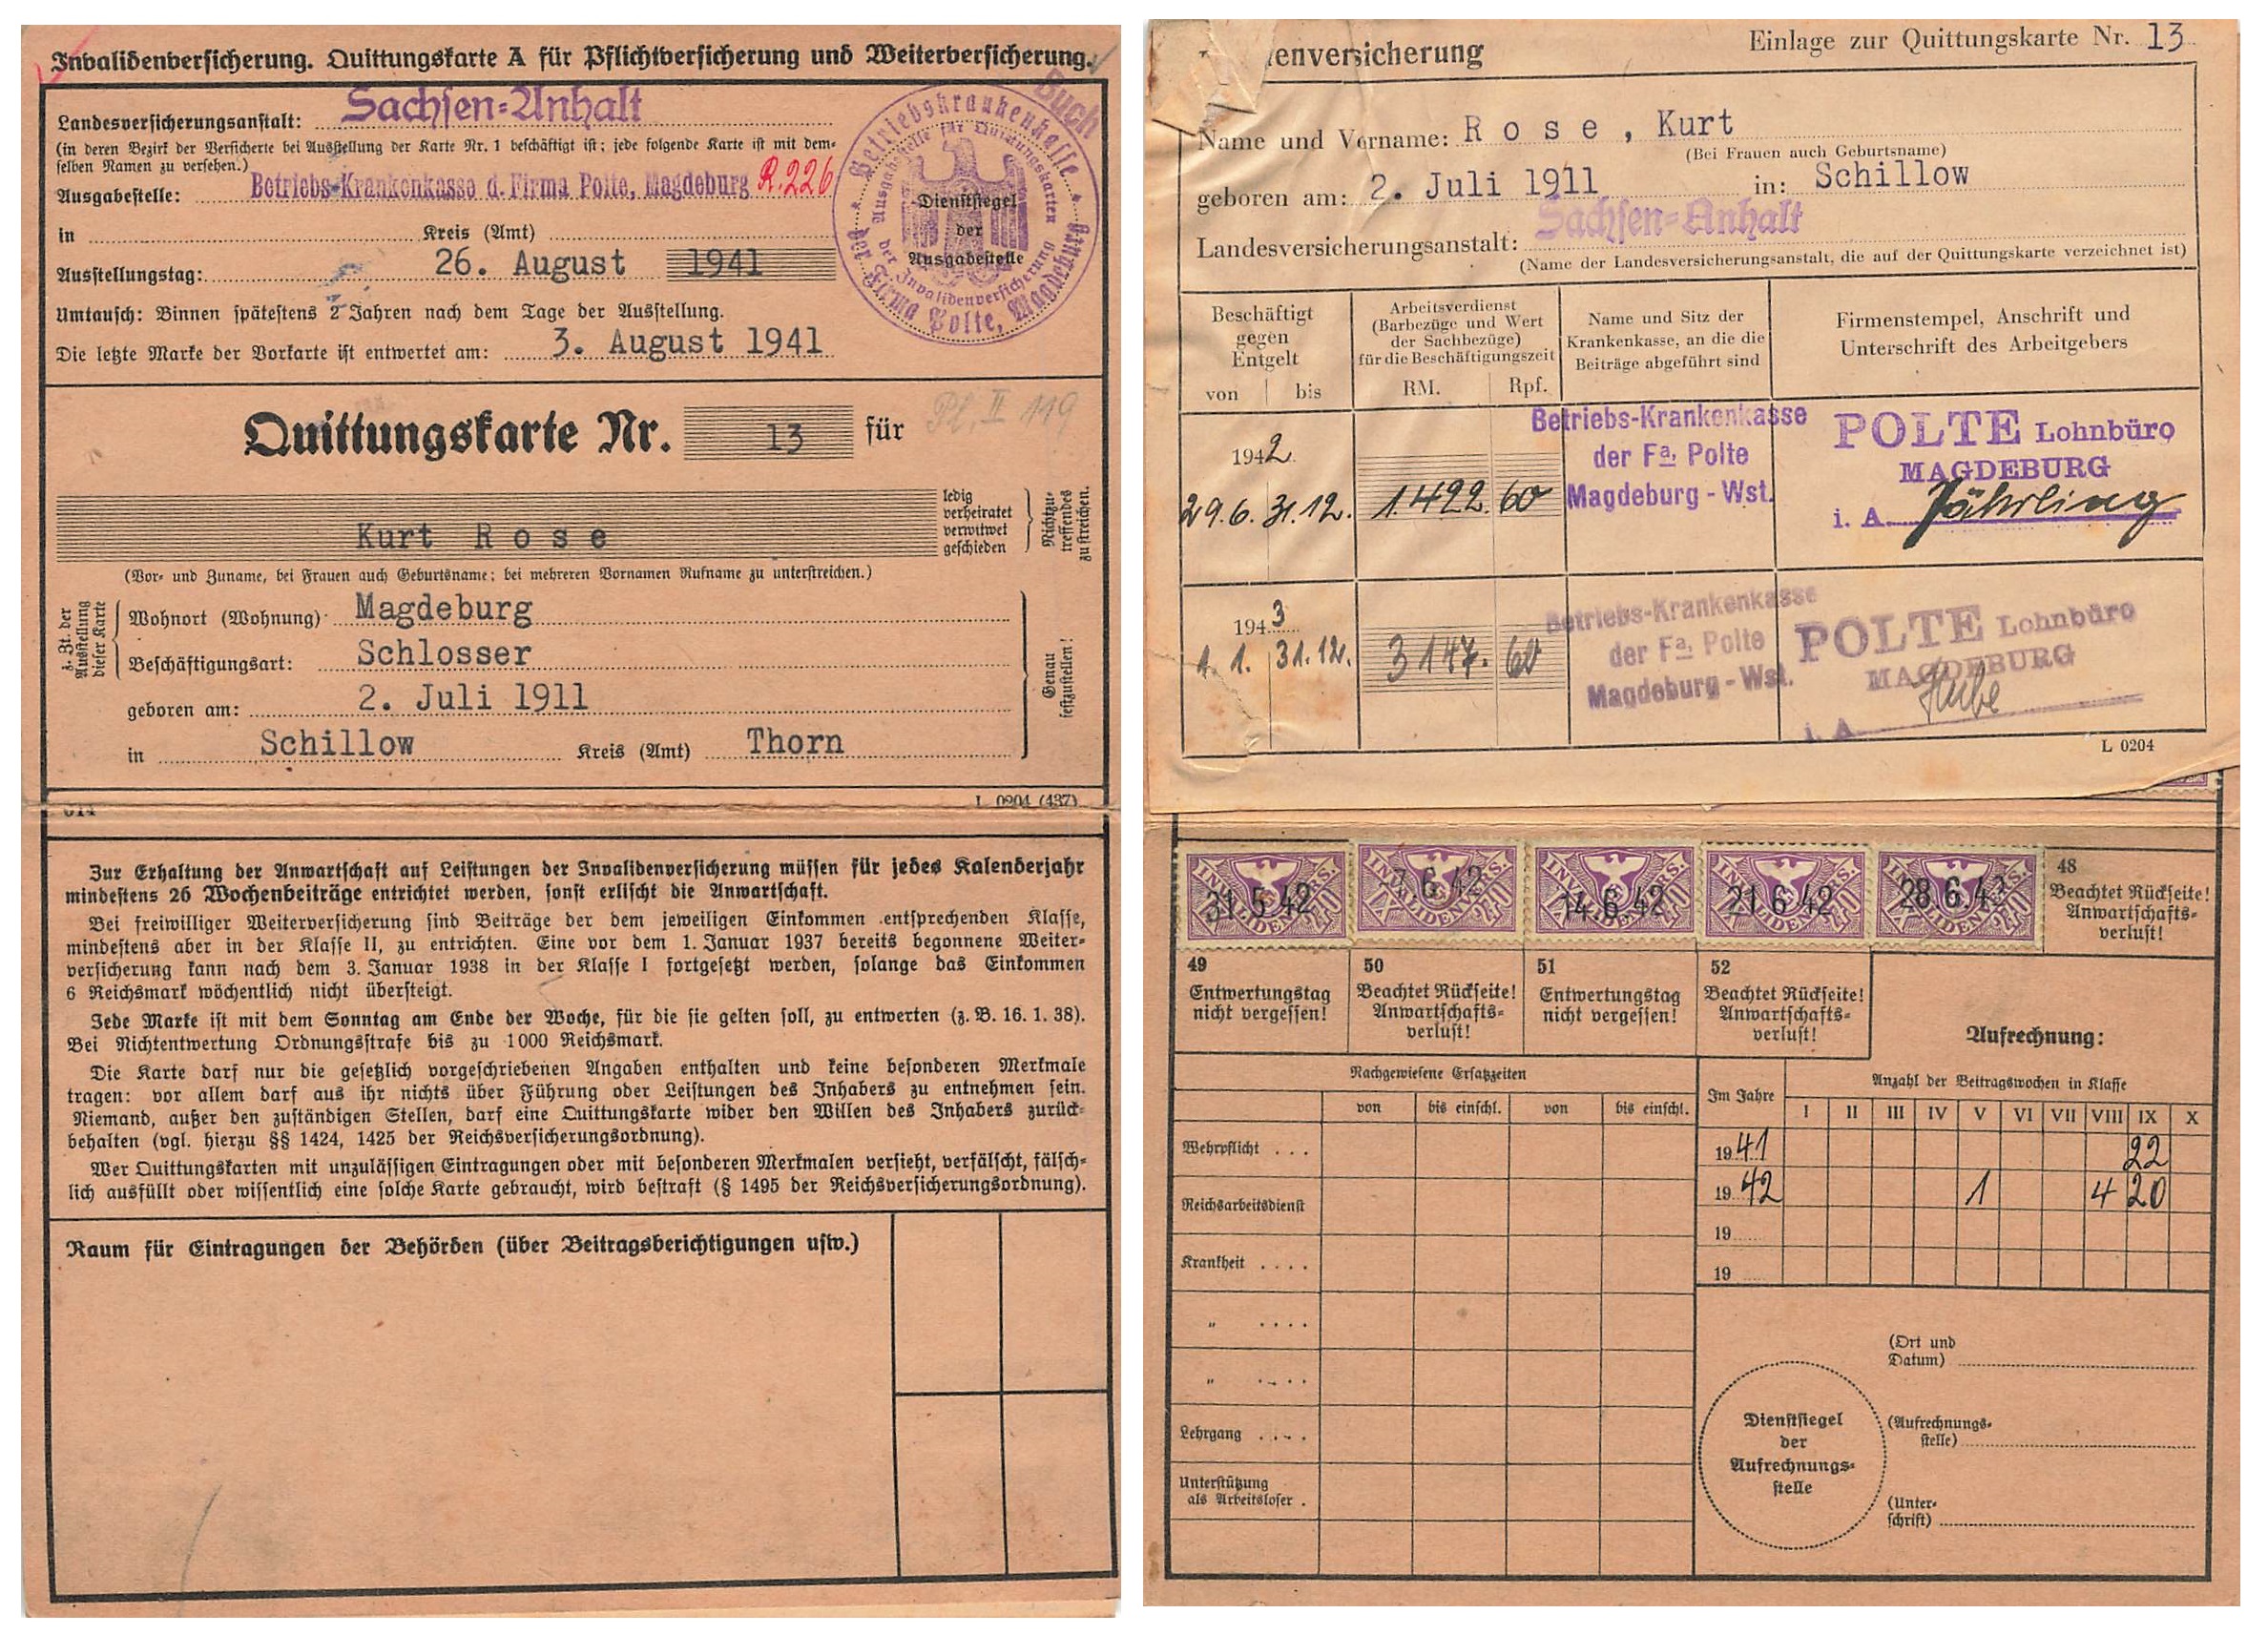 Invalidenversicherung. Quittungskarte A für Pflichtversicherung und Weiterversicherung.
Landesversicherungsanstalt: Sachsen=Anhalt
(in deren Bezirk der Versicherte bei Ausstellung der Karte Nr. 1 beschäftigt ist; jede folgende Karte ist mit dem=
selben Namen zu versehen.)
Ausgabestelle: Betriebs-Krankenkasse d. Firma Polte, Magdeburg R.226
in Kreis (Amt)
Ausstellungstag: 26. August 1941
Umtausch: Binnen spätestens 2 Jahren nach dem Tage der Ausstellung.
Die letzte Marke der Vorkarte ist entwertet am: 3. August 1941
Buch
Betriebskrankenkasse
der Firma Polte, Magdeburg
Ausgabestelle für Quittungskarten
der Invalidenversicherung
Dienstsiegel
der
Ausgabestelle
Quittungskarte Nr. 13 für
Pl. II 119
Kurt Rose
ledig
verheiratet
verwitwet
geschieden
Nichtzu=
treffendes
zu streichen.
(Vor= und Zuname, bei Frauen auch Geburtsname; bei mehreren Vornamen Rufname zu unterstreichen.)
z. Zt. der
Ausstellung
dieser Karte
Wohnort (Wohnung) Magdeburg
Beschäftigungsart: Schlosser
geboren am: 2. Juli 1911
in Schillow Kreis (Amt) Thorn
Genau
festzustellen!
L 0204 (437)
Zur Erhaltung der Anwartschaft auf Leistungen der Invalidenversicherung müssen für jedes Kalenderjahr
mindestens 26 Wochenbeiträge entrichtet werden, sonst erlischt die Anwartschaft.
Bei freiwilliger Weiterversicherung sind Beiträge der dem jeweiligen Einkommen entsprechenden Klasse,
mindestens aber in der Klasse II, zu entrichten. Eine vor dem 1. Januar 1937 bereits begonnene Weiter=
versicherung kann nach dem 3. Januar 1938 in der Klasse I fortgesetzt werden, solange das Einkommen
6 Reichsmark wöchentlich nicht übersteigt.
Jede Marke ist mit dem Sonntag am Ende der Woche, für die sie gelten soll, zu entwerten (z. B. 16. 1. 38).
Bei Nichtentwertung Ordnungsstrafe bis zu 1000 Reichsmark.
Die Karte darf nur die gesetzlich vorgeschriebenen Angaben enthalten und keine besonderen Merkmale
tragen: vor allem darf aus ihr nichts über Führung oder Leistungen des Inhabers zu entnehmen sein.
Niemand, außer den zuständigen Stellen, darf eine Quittungskarte wider den Willen des Inhabers zurück=
behalten (vgl. hierzu §§ 1424, 1425 der Reichsversicherungsordnung).
Wer Quittungskarten mit unzulässigen Eintragungen oder mit besonderen Merkmalen versieht, verfälscht, fälsch=
lich ausfüllt oder wissentlich eine solche Karte gebraucht, wird bestraft (§ 1495 der Reichsversicherungsordnung).
Raum für Eintragungen der Behörden (über Beitragsberichtigungen usw.)
Einlage zur Quittungskarte Nr. 13
enversicherung
Name und Vorname: Rose, Kurt
(Bei Frauen auch Geburtsname)
geboren am: 2. Juli 1911 in: Schillow
Landesversicherungsanstalt: Sachsen=Anhalt
(Name der Landesversicherungsanstalt, die auf der Quittungskarte verzeichnet ist)
Beschäftigt
gegen
Entgelt
von bis
Arbeitsverdienst
(Barbezüge und Wert
der Sachbezüge)
für die Beschäftigungszeit
RM. Rpf.
Name und Sitz der
Krankenkasse, an die die
Beiträge abgeführt sind
Firmenstempel, Anschrift und
Unterschrift des Arbeitgebers
1942
29.6. 31.12. 1422. 60
Betriebs-Krankenkasse
der Fa. Polte
Magdeburg - Wst.
POLTE Lohnbüro
MAGDEBURG
i. A. Jährling
1943
1. 1. 31.12. 3147. 60
Betriebs-Krankenkasse
der Fa. Polte
Magdeburg - Wst.
POLTE Lohnbüro
MAGDEBURG
i. A.
L 0204
INVALIDENVERS. 31.5.42
INVALIDENVERS. 7.6.42
INVALIDENVERS. 14.6.42
INVALIDENVERS. 21.6.42
INVALIDENVERS. 28.6.42
48
Beachtet Rückseite!
Anwartschafts=
verlust!
49
Entwertungstag
nicht vergessen!
50
Beachtet Rückseite!
Anwartschafts=
verlust!
51
Entwertungstag
nicht vergessen!
52
Beachtet Rückseite!
Anwartschafts=
verlust!
Aufrechnung:
Nachgewiesene Ersatzzeiten
von bis einschl. von bis einschl.
Wehrpflicht . . .
Reichsarbeitsdienst
Krankheit . . . .
„ . . . .
„ . . . .
Lehrgang . . . .
Unterstützung
als Arbeitsloser .
Im Jahre
Anzahl der Beitragswochen in Klasse
I II III IV V VI VII VIII IX X
1941 22
1942 1 4 20
19
19
(Ort und
Datum)
Dienstsiegel
der
Aufrechnungs=
stelle
(Aufrechnungs=
stelle)
(Unter=
schrift)